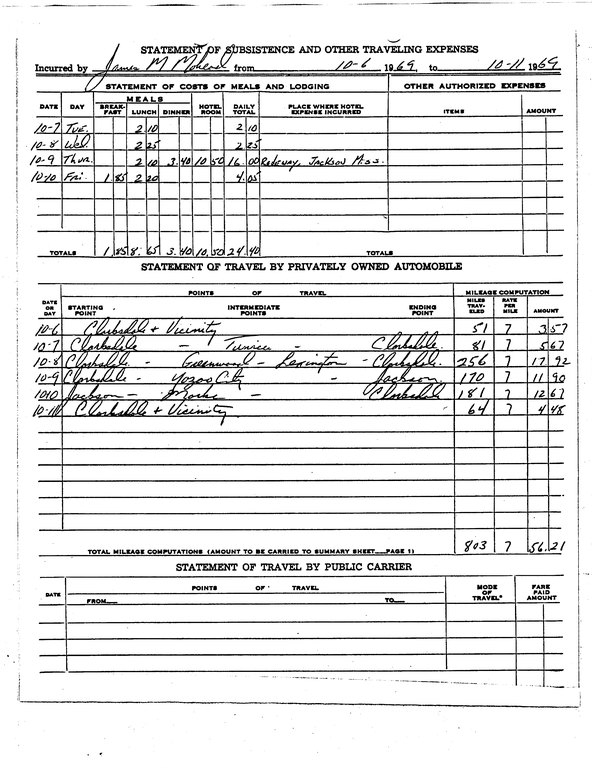 STATEMENT OF SUBSISTENCE AND OTHER TRAVELING EXPENSES
Incurred by James M from 10-6 1969, to 10-11 1969
STATEMENT OF COSTS OF MEALS AND LODGING OTHER AUTHORIZED EXPENSES
MEALS
DATE DAY BREAK-FAST LUNCH DINNER HOTEL ROOM DAILY TOTAL PLACE WHERE HOTEL EXPENSE INCURRED ITEMS AMOUNT
10-7 Tue. 2 10 2 10
10-8 Wed. 2 25 2 25
10-9 Thur. 2 10 3.40 10 50 16.00 Rodeway, Jackson Miss.
10/10 Fri. 1 85 2 20 4.05
TOTALS 1 85 8.65 3.40 10.50 24.40 TOTALS
STATEMENT OF TRAVEL BY PRIVATELY OWNED AUTOMOBILE
POINTS OF TRAVEL MILEAGE COMPUTATION
DATE OR DAY STARTING POINT INTERMEDIATE POINTS ENDING POINT MILES TRAV-ELED RATE PER MILE AMOUNT
10-6 Clarksdale + Vicinity 51 7 3 57
10-7 Clarksdale - Tunica - Clarksdale. 81 7 5 67
10-8 Clarksdale. - Greenwood - Lexington - Clarksdale. 256 7 17 92
10-9 Clarksdale. - Yazoo City - Jackson 170 7 11 90
1010 Jackson - - Clarksdale 181 7 12 67
10-11 Clarksdale + Vicinity 64 7 4 48
TOTAL MILEAGE COMPUTATIONS (AMOUNT TO BE CARRIED TO SUMMARY SHEET PAGE 1) 803 7 56.21
STATEMENT OF TRAVEL BY PUBLIC CARRIER
DATE POINTS OF TRAVEL MODE OF TRAVEL* FARE PAID AMOUNT
FROM TO